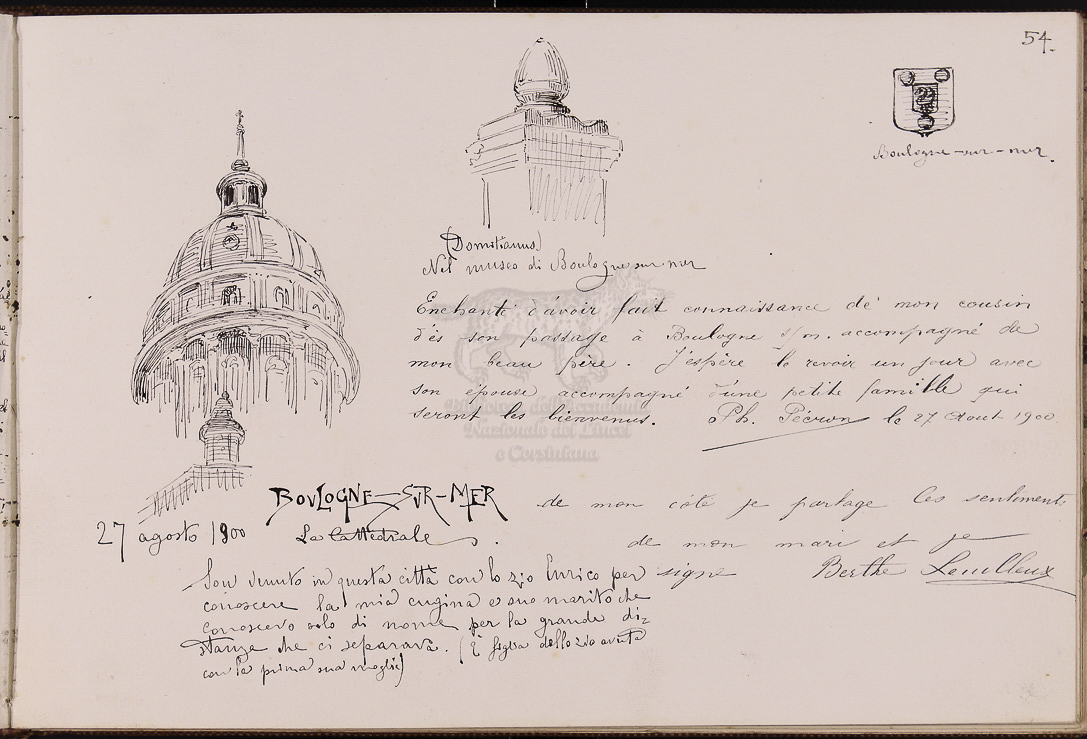 54.
Boulogne-sur-mer.
(Domitianus)
Nel museo di Boulogne sur mer
Enchanté d'avoir fait connaissance de mon cousin
dès son passage à Boulogne s/m. accompagné de
mon beau père. J'espère le revoir un jour avec
son épouse accompagné d'une petite famille qui
seront les bienvenus. Ph. le 27 Aout 1900
BOVLOGNE-SVR-MER
27 agosto 1900
La Cattedrale.
de mon côté je partage les sentiments
de mon mari et je
signe Berthe
Son venuto in questa città con lo zio Enrico per
conoscere la mia cugina e suo marito che
conoscevo solo di nome per la grande di=
stanza che ci separava. (È figlia dello zio avuta
con la prima sua moglie)
Biblioteca dell'Accademia
Nazionale dei Lincei
e Corsiniana